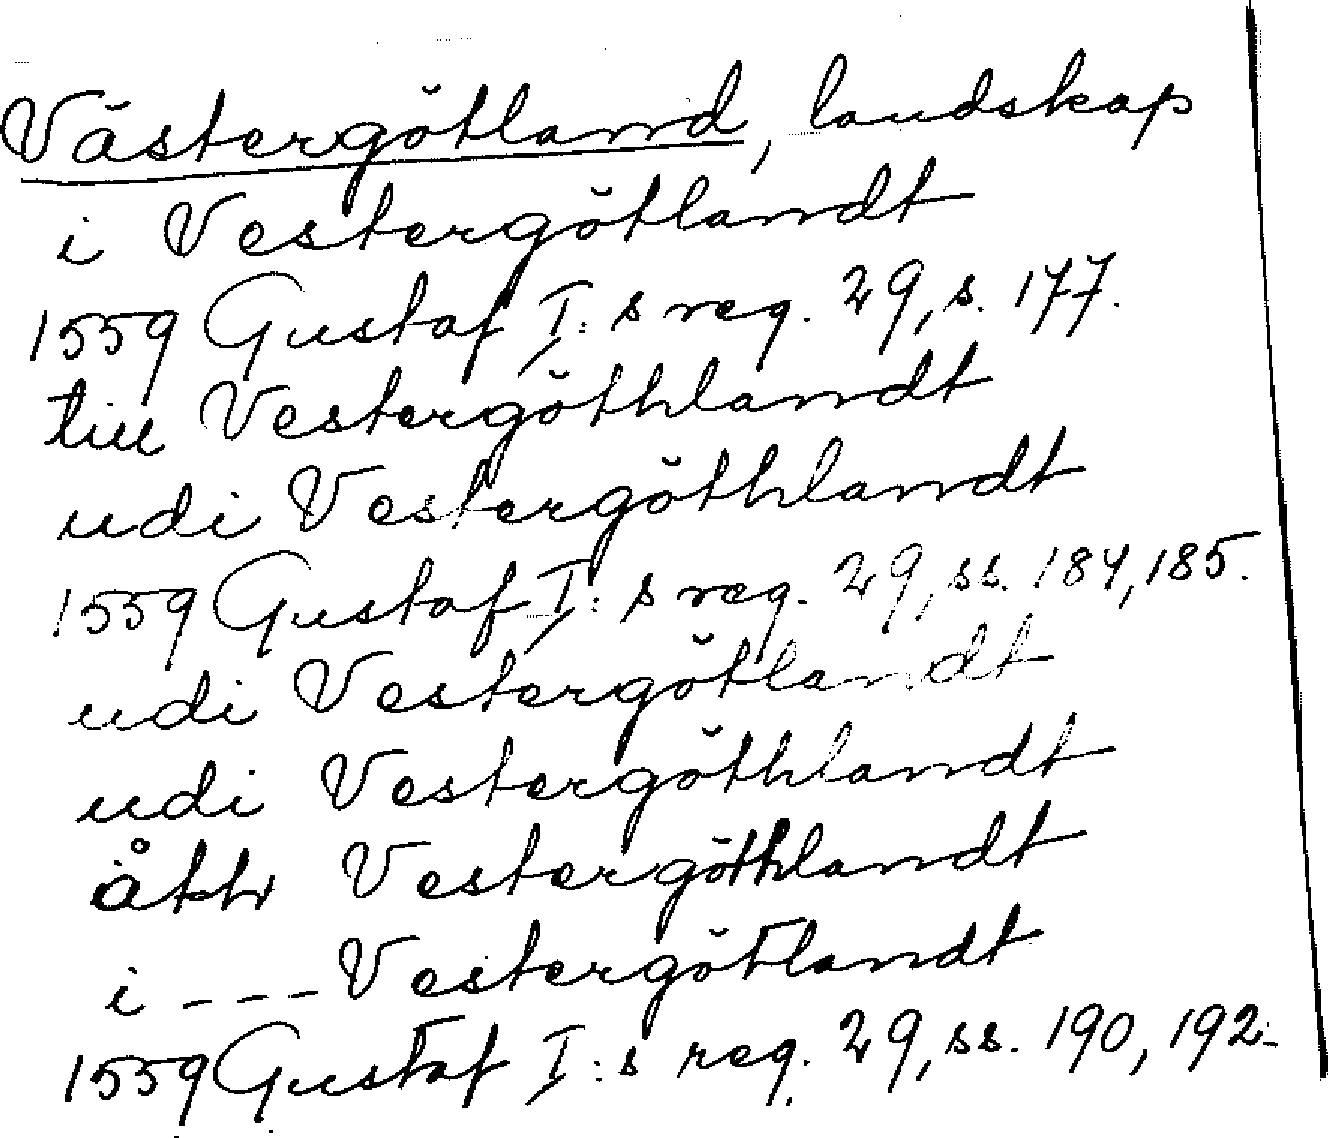 Västergötland, landskap
i Vestergötlandt
1559 Gustaf I:s reg. 29, s. 177.
till Vestergöthlandt
udi Vestergöthlandt
1559 Gustaf I:s reg. 29, ss. 184, 185.
udi Vestergötlandt
udi Vestergöthlandt
Vestergöthlandt
i --- Vestergötlandt
1559 Gustaf I:s reg. 29, ss. 190, 192.